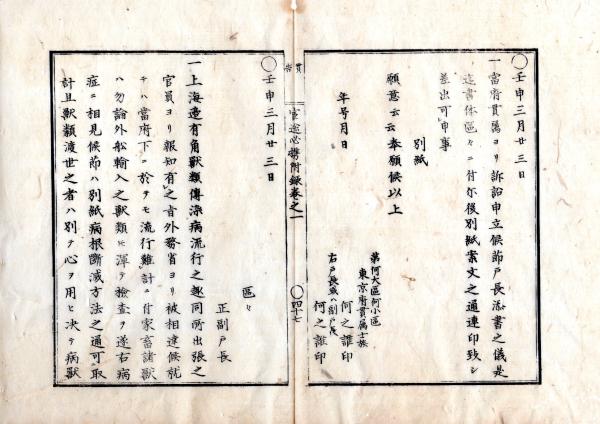 〇壬申三月廿三日
一當府貫属ヨリ訴訟申立候節戸長添書之儀是
迄書体區々ニ付尓後別紙案文之通連印致シ
差出可申事
別紙
願意云云奉願候以上
年号月日
第何大區何小區
東京府貫属士族
何之誰印
右戸長或ハ副戸長
何之誰印
官途必携附録巻之一
〇四十七
〇壬申三月廿三日
區々
正副戸長
一上海邊有角獣類傳染病流行之趣同所出張之
官員ヨリ報知有之旨外務省ヨリ被相達候就
テハ當府下ニ於テモ流行難計ニ付家畜諸獣
ハ勿論外船輸入之獣類ヒ渾テ檢査ヲ遂右病
症ニ相見候節ハ別紙病根断滅方法之通可取
計且獣類渡世之者ハ別テ心ヲ用ヒ决テ病獣